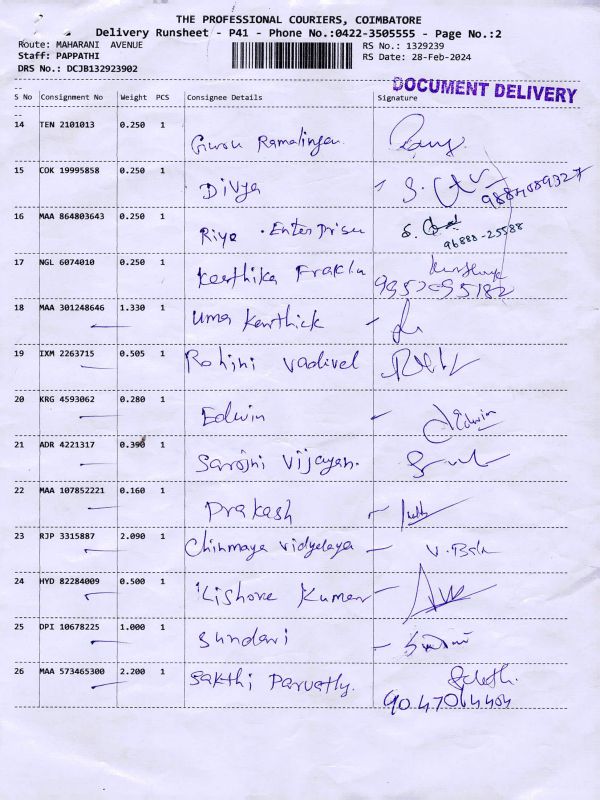 THE PROFESSIONAL COURIERS, COIMBATORE
Delivery Runsheet - P41 - Phone No.:0422-3505555 - Page No.:2
Route: MAHARANI AVENUE RS No.: 1329239
Staff: PAPPATHI RS Date: 28-Feb-2024
DRS No.: DCJB132923902
DOCUMENT DELIVERY
S No Consignment No Weight PCS Consignee Details Signature
14 TEN 2101013 0.250 1 Ramalingam
15 COK 19995858 0.250 1 Divya
16 MAA 864803643 0.250 1 Riya . Enterprise
96888-25588
17 NGL 6074010 0.250 1 Keerthika
18 MAA 301248646 1.330 1 Uma Karthick
19 IXM 2263715 0.505 1 Rohini Vadivel
20 KRG 4593062 0.280 1 Edwin Edwin
21 ADR 4221317 0.390 1 Sarojni Vijayan.
22 MAA 107852221 0.160 1 Prakash
23 RJP 3315887 2.090 1 Chinmaya Vidyalaya V. Bala
24 HYD 82284009 0.500 1 Kishore Kumar
25 DPI 10678225 1.000 1 Sundari
26 MAA 573465300 2.200 1 Sakthi Parvathy.
9047064404